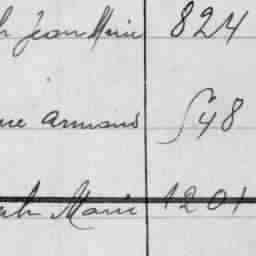 Jean Marie 824
Armand 548
Marie 1201